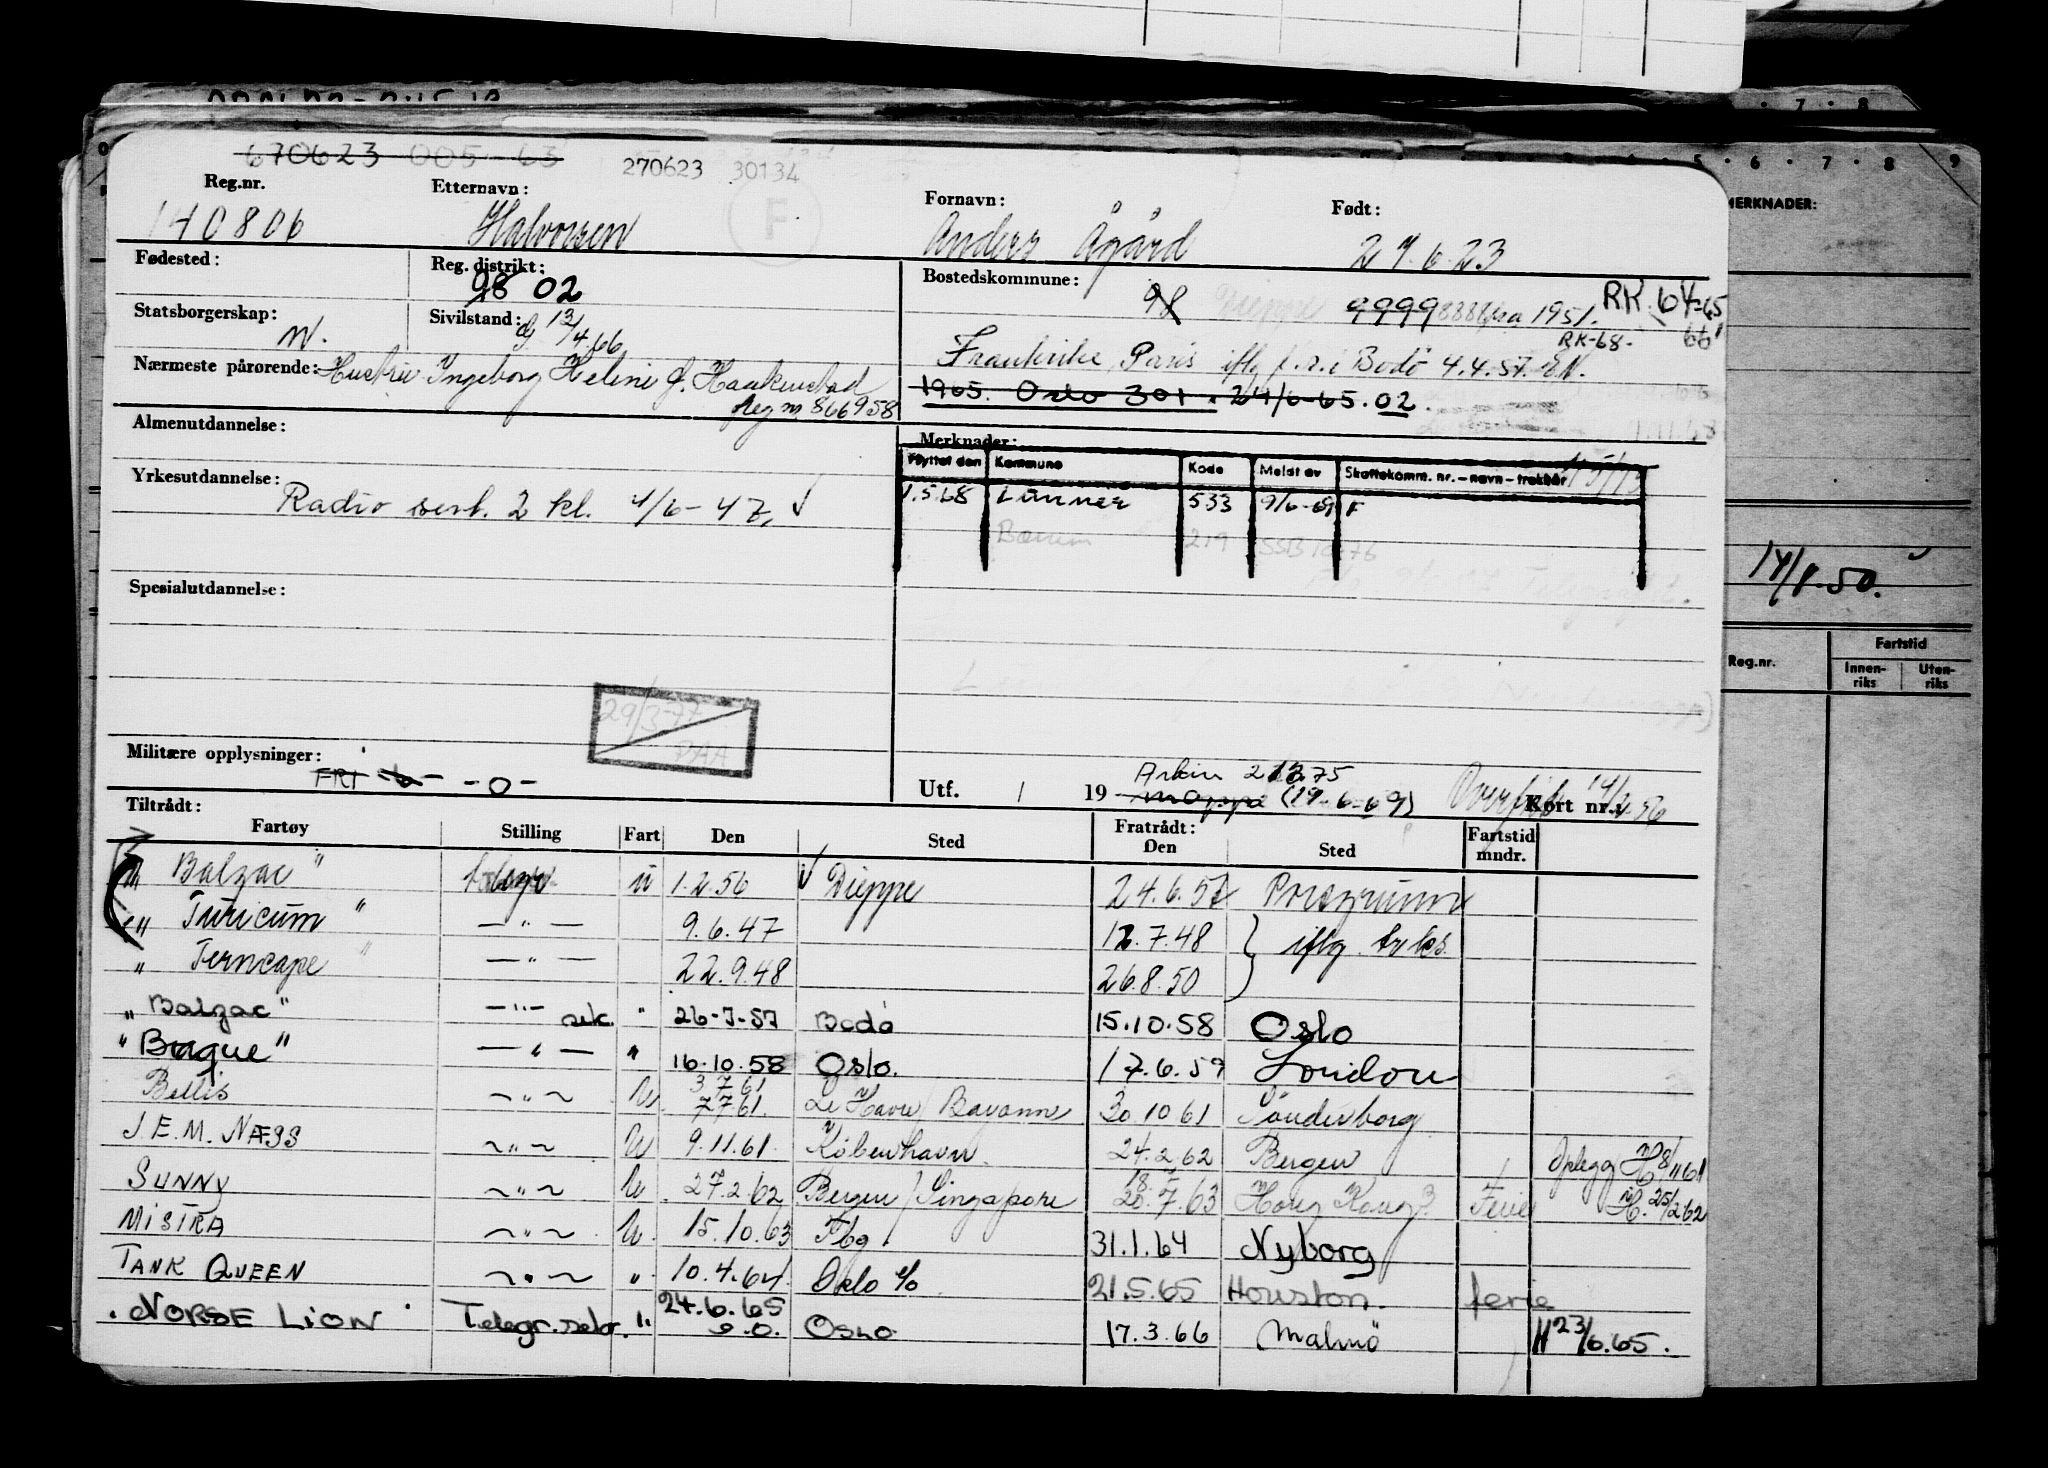 670623 005-63 270623 30134
Reg.nr. Etternavn: Fornavn: Født:
140806 Halvorsen Anders Ågård 27.6.23
F
Fødested: Reg. distrikt: Bostedskommune:
98 02
98 Dieppe 9999 8888 fra 1951. RK. 64-65
66
Statsborgerskap: Sivilstand:
N. g. 13/4.66
RK-68-
Nærmeste pårørende: Hustru Ingeborg Helene f. Haakenstad
Reg nr 866958
Frankrike, Paris iflg f.r.i Bodö 4.4.57.
1965. Oslo 301. 24/6-65.02.
Almenutdannelse: Merknader:
Flyttet den Kommune Kode Meldt av Skattekomm. nr. - navn - trekkår
Yrkesutdannelse:
Radio sert. 2 kl. 4/6-47.
1.5.68 Lunner 533 9/6-69 F
Bærum 219 SSB 10276
Spesialutdannelse:
29/3-77
PAA
Militære opplysninger:
FRI -o-
Utf. / 19 Kort nr.:
Arkiv 2 12.75
Mappe (19-6-69)
Tiltrådt: Fratrådt:
Fartøy Stilling Fart Den Sted Den Sted Fartstid mndr.
" Balzac " telegr u 1.2.56 Dieppe 24.6.57 Porsgrunn
" Turicum " — " — 9.6.47 12.7.48 } iflg.
" Ferncape " — " — 22.9.48 26.8.50
" Balzac" — " — sek. " 26-7-57 Bodø 15.10.58 Oslo
" Braque" — " — " 16.10.58 Oslo. 17.6.59 London
Bellis ~ " ~ U 3 7 61
7 7 61. Le Havre / Bayonne 30 10 61 Sönderborg
J.E.M. NÆSS ~ " ~ U 9.11.61. København 24.2.62 Bergen Oplegg H 8/11 61
SUNNY ~ " ~ U 27.2.62 Bergen / Singapore 18.
20.7.63 Hong Kong? Ferie H. 25/2 62
MISTRA ~ " ~ U 15.10.63 Fbg 31.1.64 Nyborg
TANK QUEEN ~ " ~ " 10.4.64 Oslo 21.5.65 Houston. ferie
. NORSE LION Telegr.sekr. " 24.6.65
e.o. Oslo 17.3.66 Malmö H 23/6.65.
MERKNADER:
14/8.50.
Reg.nr. Fartstid
Innen-riks Uten-riks
5 · 6 · 7 · 8 · 9